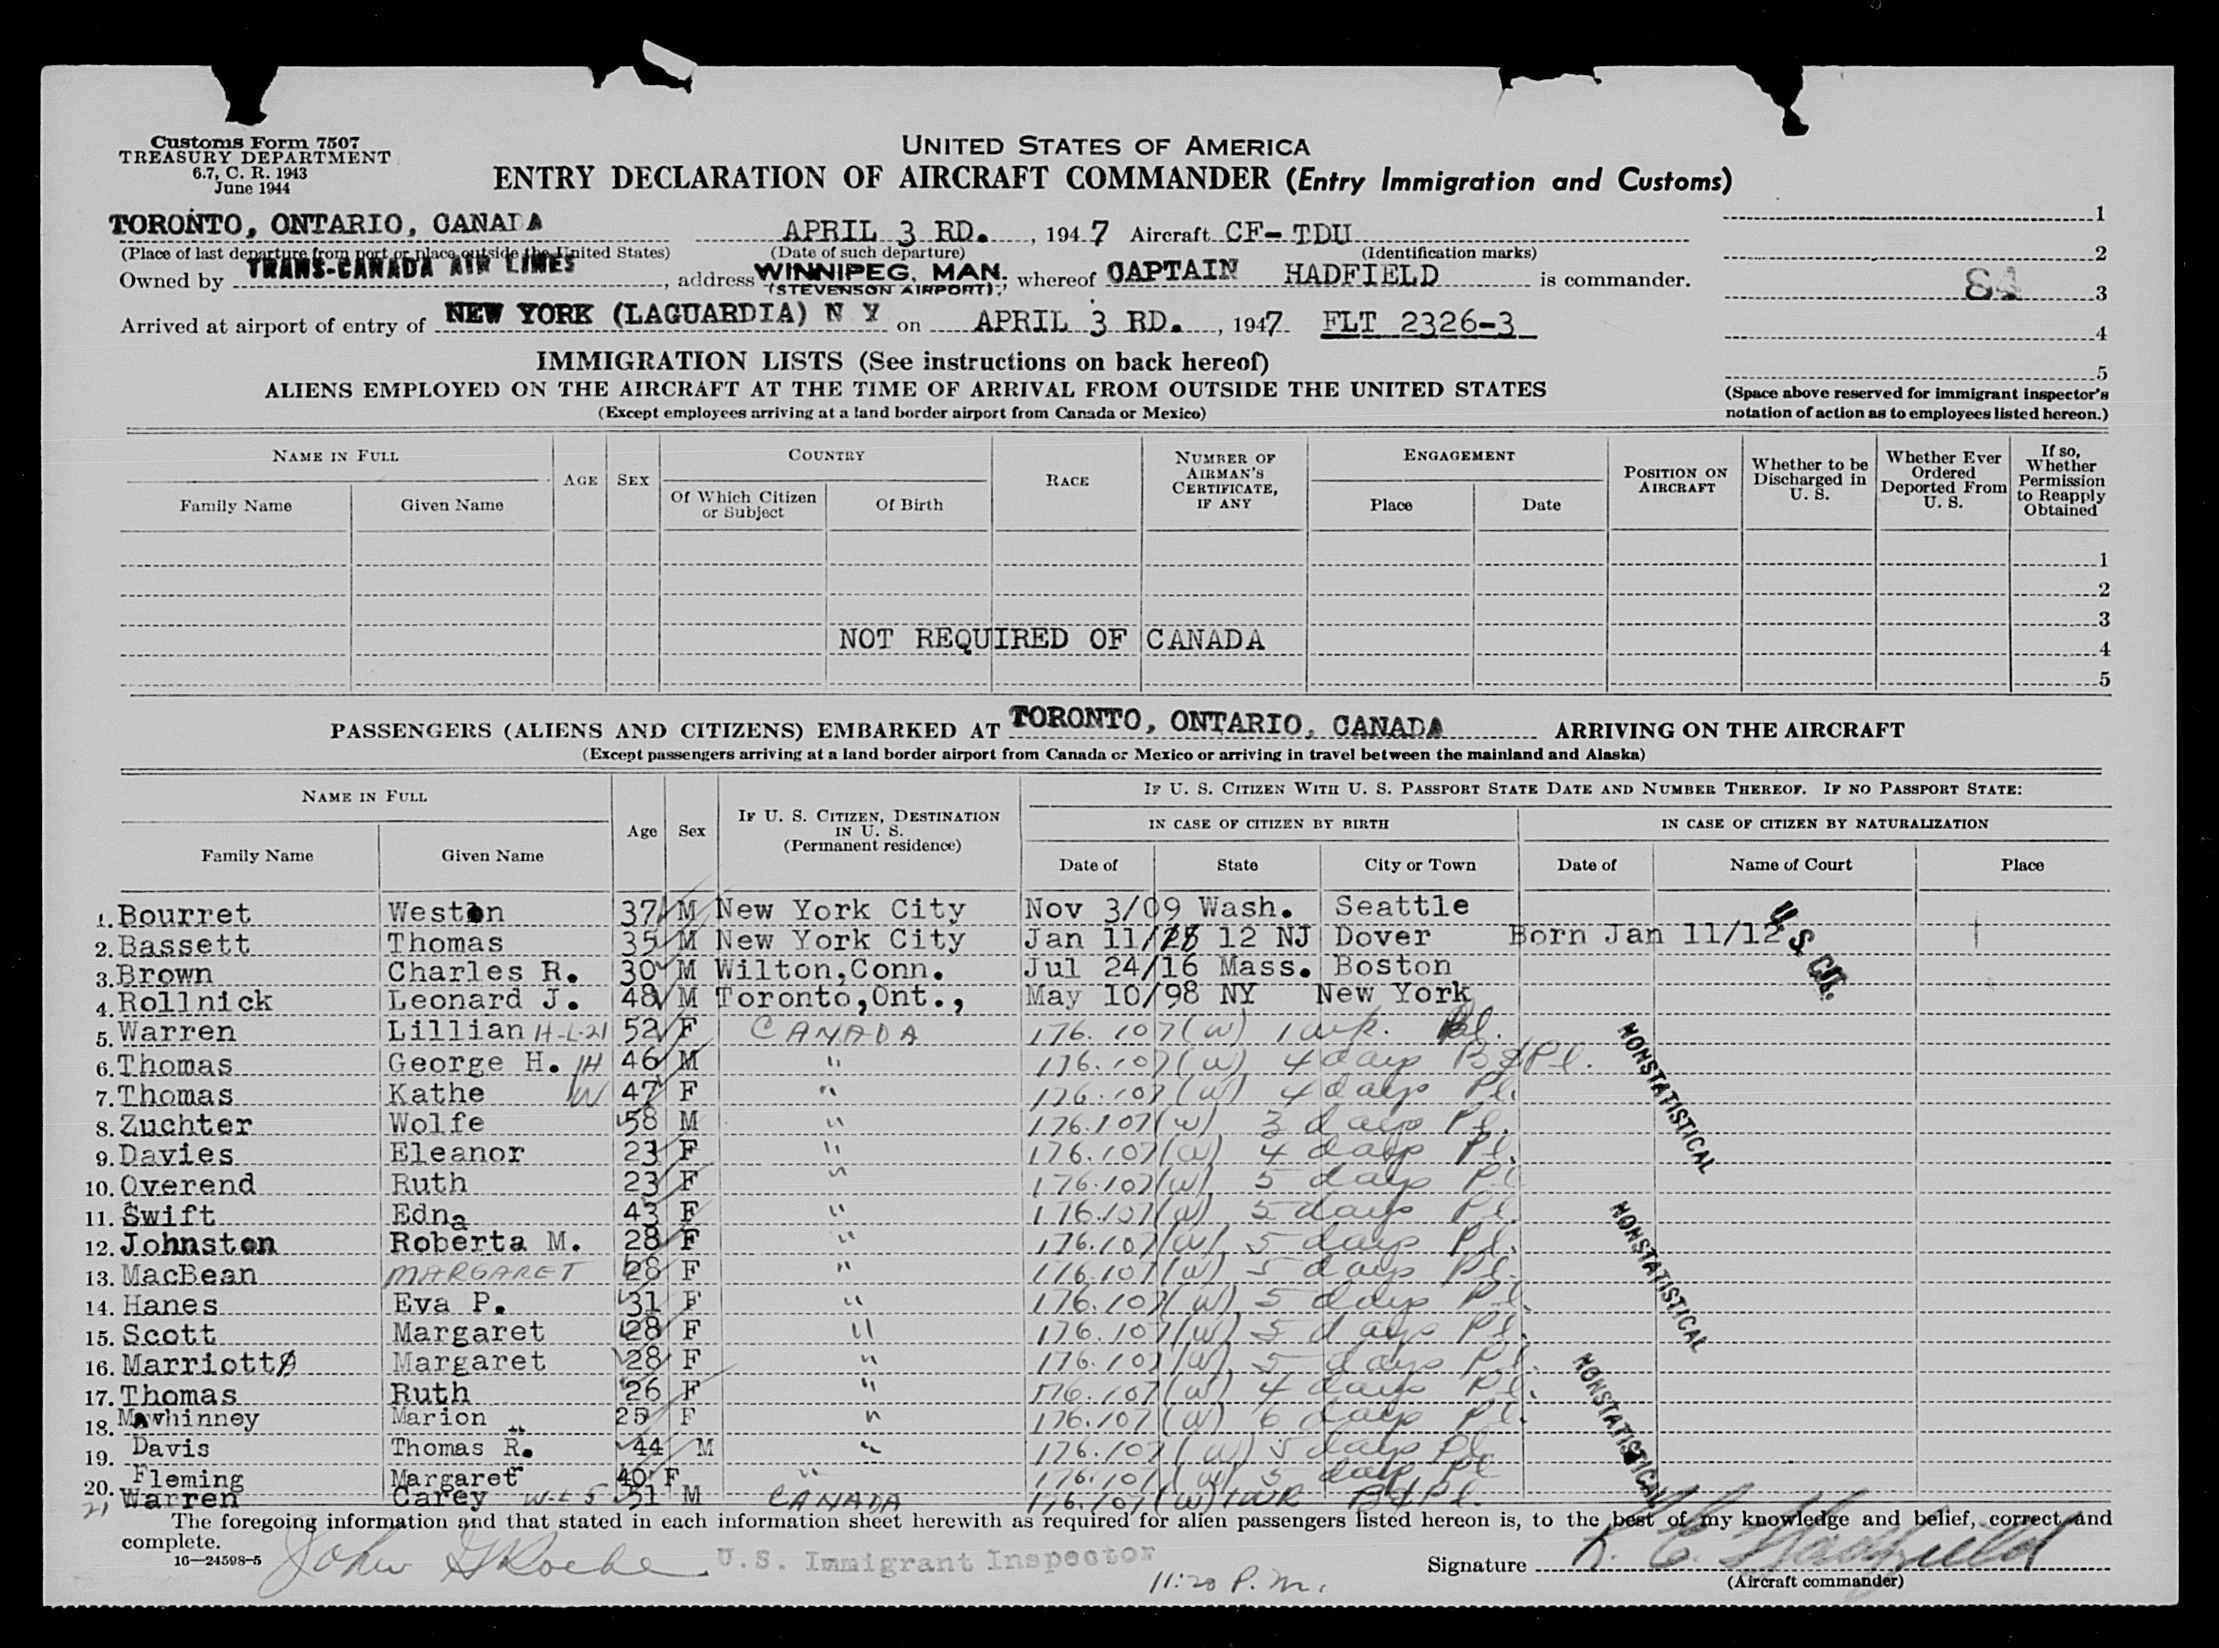 Customs Form 7507
TREASURY DEPARTMENT
6.7, C. R. 1943
June 1944
UNITED STATES OF AMERICA
ENTRY DECLARATION OF AIRCRAFT COMMANDER (Entry Immigration and Customs)
TORONTO, ONTARIO, CANADA APRIL 3 RD. , 1947 Aircraft CF-TDU 1
(Place of last departure from port or place outside the United States) (Date of such departure) (Identification marks) 2
Owned by TRANS-CANADA AIR LINES , address WINNIPEG, MAN. (STEVENSON AIRPORT) ; whereof CAPTAIN HADFIELD is commander. 84 3
Arrived at airport of entry of NEW YORK (LAGUARDIA) N Y on APRIL 3 RD. , 1947 FLT 2326-3 4
5
IMMIGRATION LISTS (See instructions on back hereof)
ALIENS EMPLOYED ON THE AIRCRAFT AT THE TIME OF ARRIVAL FROM OUTSIDE THE UNITED STATES
(Except employees arriving at a land border airport from Canada or Mexico)
(Space above reserved for immigrant inspector's
notation of action as to employees listed hereon.)
NAME IN FULL AGE SEX COUNTRY RACE NUMBER OF AIRMAN'S CERTIFICATE, IF ANY ENGAGEMENT POSITION ON AIRCRAFT Whether to be Discharged in U. S. Whether Ever Ordered Deported From U. S. If so, Whether Permission to Reapply Obtained
Family Name Given Name Of Which Citizen or Subject Of Birth Place Date
1
2
3
NOT REQUIRED OF CANADA 4
5
PASSENGERS (ALIENS AND CITIZENS) EMBARKED AT TORONTO, ONTARIO, CANADA ARRIVING ON THE AIRCRAFT
(Except passengers arriving at a land border airport from Canada or Mexico or arriving in travel between the mainland and Alaska)
NAME IN FULL Age Sex IF U. S. CITIZEN, DESTINATION IN U. S. (Permanent residence) IF U. S. CITIZEN WITH U. S. PASSPORT STATE DATE AND NUMBER THEREOF. IF NO PASSPORT STATE:
IN CASE OF CITIZEN BY BIRTH IN CASE OF CITIZEN BY NATURALIZATION
Family Name Given Name Date of State City or Town Date of Name of Court Place
1. Bourret Weston 37 M New York City Nov 3/09 Wash. Seattle
2. Bassett Thomas 35 M New York City Jan 11/ 12 NJ Dover Born Jan 11/12
U. S. CIT.
3. Brown Charles R. 30 M Wilton,Conn. Jul 24/16 Mass. Boston
4. Rollnick Leonard J. 48 M Toronto,Ont., May 10/98 NY New York
5. Warren Lillian H-L-21 52 F CANADA 176.107(w) 1 wk. Pl.
6. Thomas George H. H 46 M " 176.107(w) 4 days B & Pl.
7. Thomas Kathe W 47 F " 176.107(w) 4 days Pl.
8. Zuchter Wolfe 58 M " 176.107(w) 3 days Pl.
9. Davies Eleanor 23 F " 176.107(w) 4 days Pl.
10. Overend Ruth 23 F " 176.107(w) 5 days Pl
11. Swift Edna 43 F " 176.107(w) 5 days Pl.
12. Johnston Roberta M. 28 F " 176.107(w) 5 days Pl.
13. MacBean MARGARET 28 F " 176.107(w) 5 days Pl.
14. Hanes Eva P. 31 F " 176.107(w) 5 days Pl.
15. Scott Margaret 28 F " 176.107(w) 5 days Pl.
16. Marriott Margaret 28 F " 176.107(w) 5 days Pl.
17. Thomas Ruth 26 F " 176.107(w) 4 days Pl.
18. Mawhinney Marion 25 F " 176.107(w) 6 days Pl.
19. Davis Thomas R. 44 M " 176.107(w) 5 days Pl
20. Fleming Margaret 40 F " 176.107(w) 5 days Pl
21 Warren Carey W-L 5 51 M CANADA 176.107(w) 1 WK B & Pl.
NONSTATISTICAL
NONSTATISTICAL
NONSTATISTICAL
The foregoing information and that stated in each information sheet herewith as required for alien passengers listed hereon is, to the best of my knowledge and belief, correct and
complete.
16—24598-5
John G Roche U.S. Immigrant Inspector
11:20 P.m.
Signature Hadfield
(Aircraft commander)